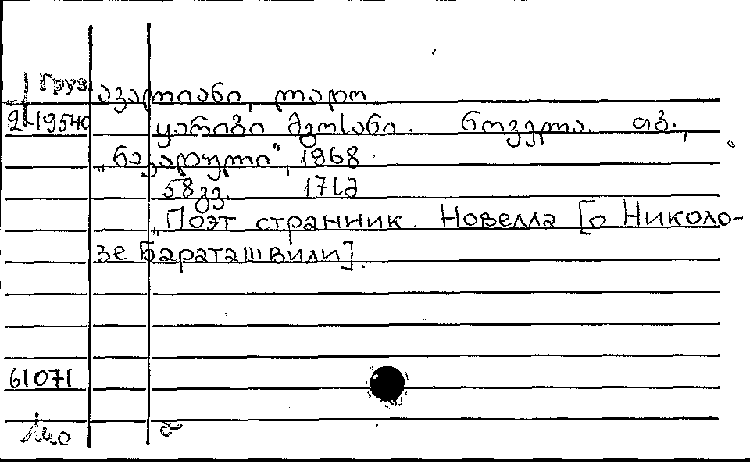 Груз. ავალიანი, ლადო
2-19540 ყარიბი მგოსანი. ნოველა. თბ.,
„ნაკადული", 1968.
58 გვ. 17 სმ
„Поэт странник. Новелла [о Николо-
зе Бараташвили].
61071